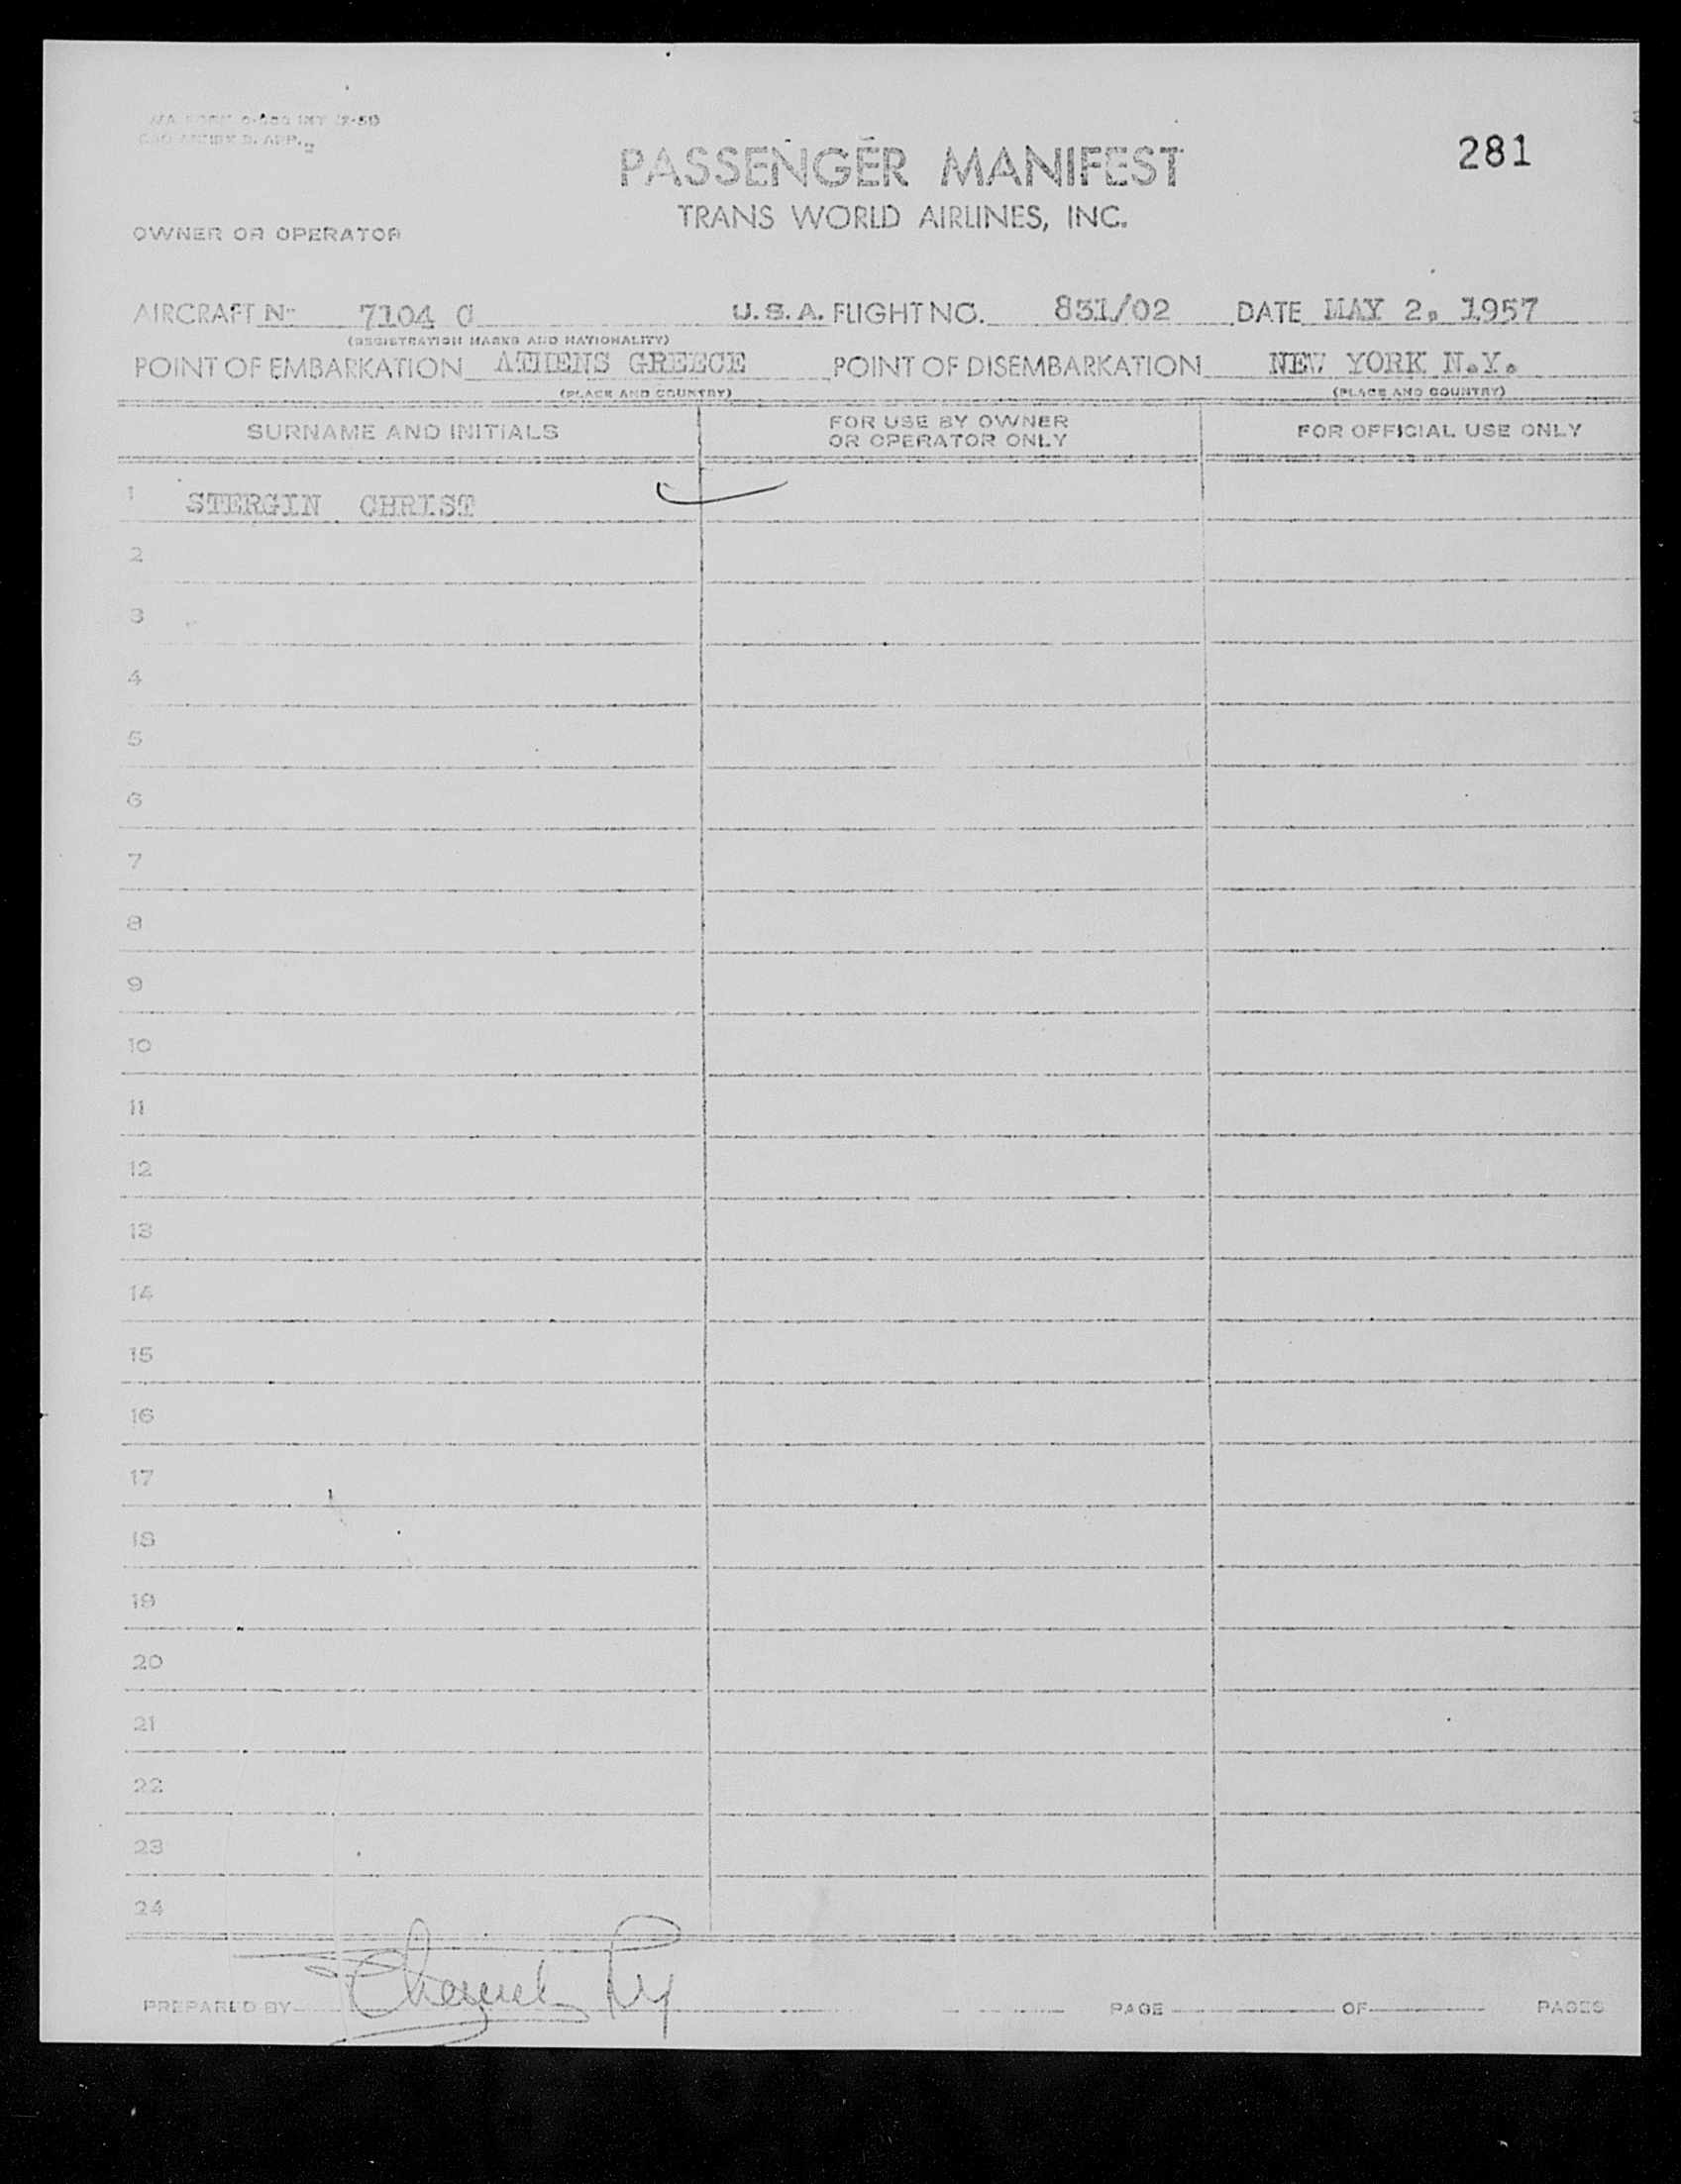 281
PASSENGER MANIFEST
TRANS WORLD AIRLINES, INC.
OWNER OR OPERATOR
AIRCRAFT N- 7104 C U.S.A. FLIGHT NO. 831/02 DATE MAY 2, 1957
(REGISTRATION MARKS AND NATIONALITY)
POINT OF EMBARKATION ATHENS GREECE POINT OF DISEMBARKATION NEW YORK N.Y.
(PLACE AND COUNTRY) (PLACE AND COUNTRY)
SURNAME AND INITIALS FOR USE BY OWNER OR OPERATOR ONLY FOR OFFICIAL USE ONLY
1 STERGIN CHRIST
2
3
4
5
6
7
8
9
10
11
12
13
14
15
16
17
18
19
20
21
22
23
24
PREPARED BY PAGE OF PAGES